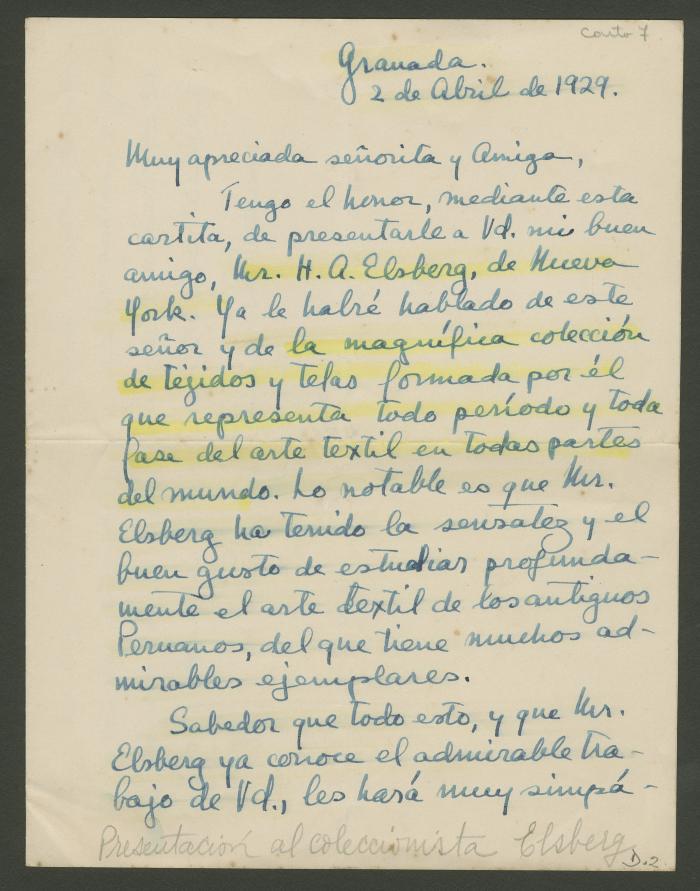 Carto 7
Granada.
2 de Abril de 1929.
Muy apreciada señorita y Amiga,
Tengo el honor, mediante esta
cartita, de presentarle a Vd. mi buen
amigo, Mr. H. A. Elsberg, de Nueva
York. Ya le habré hablado de este
señor y de la magnífica colección
de tejidos y telas formada por él
que representa todo período y toda
fase del arte textil en todas partes
del mundo. Lo notable es que Mr.
Elsberg ha tenido la sensatez y el
buen gusto de estudiar profunda-
mente el arte textil de los antiguos
Peruanos, del que tiene muchos ad-
mirables ejemplares.
Sabedor que todo esto, y que Mr.
Elsberg ya conoce el admirable tra-
bajo de Vd., les hará muy simpá-
Presentación al coleccionista Elsberg
D.2